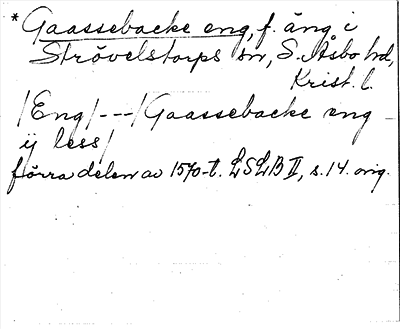 * Gaassebacke eng, f. äng i
Strövelstorps sn, S. Åsbo hd,
Krist. l.
/Eng/ --- / Gaassebacke eng
ij less/
förra delen av 1570-t. LSLB II, s. 14. orig.